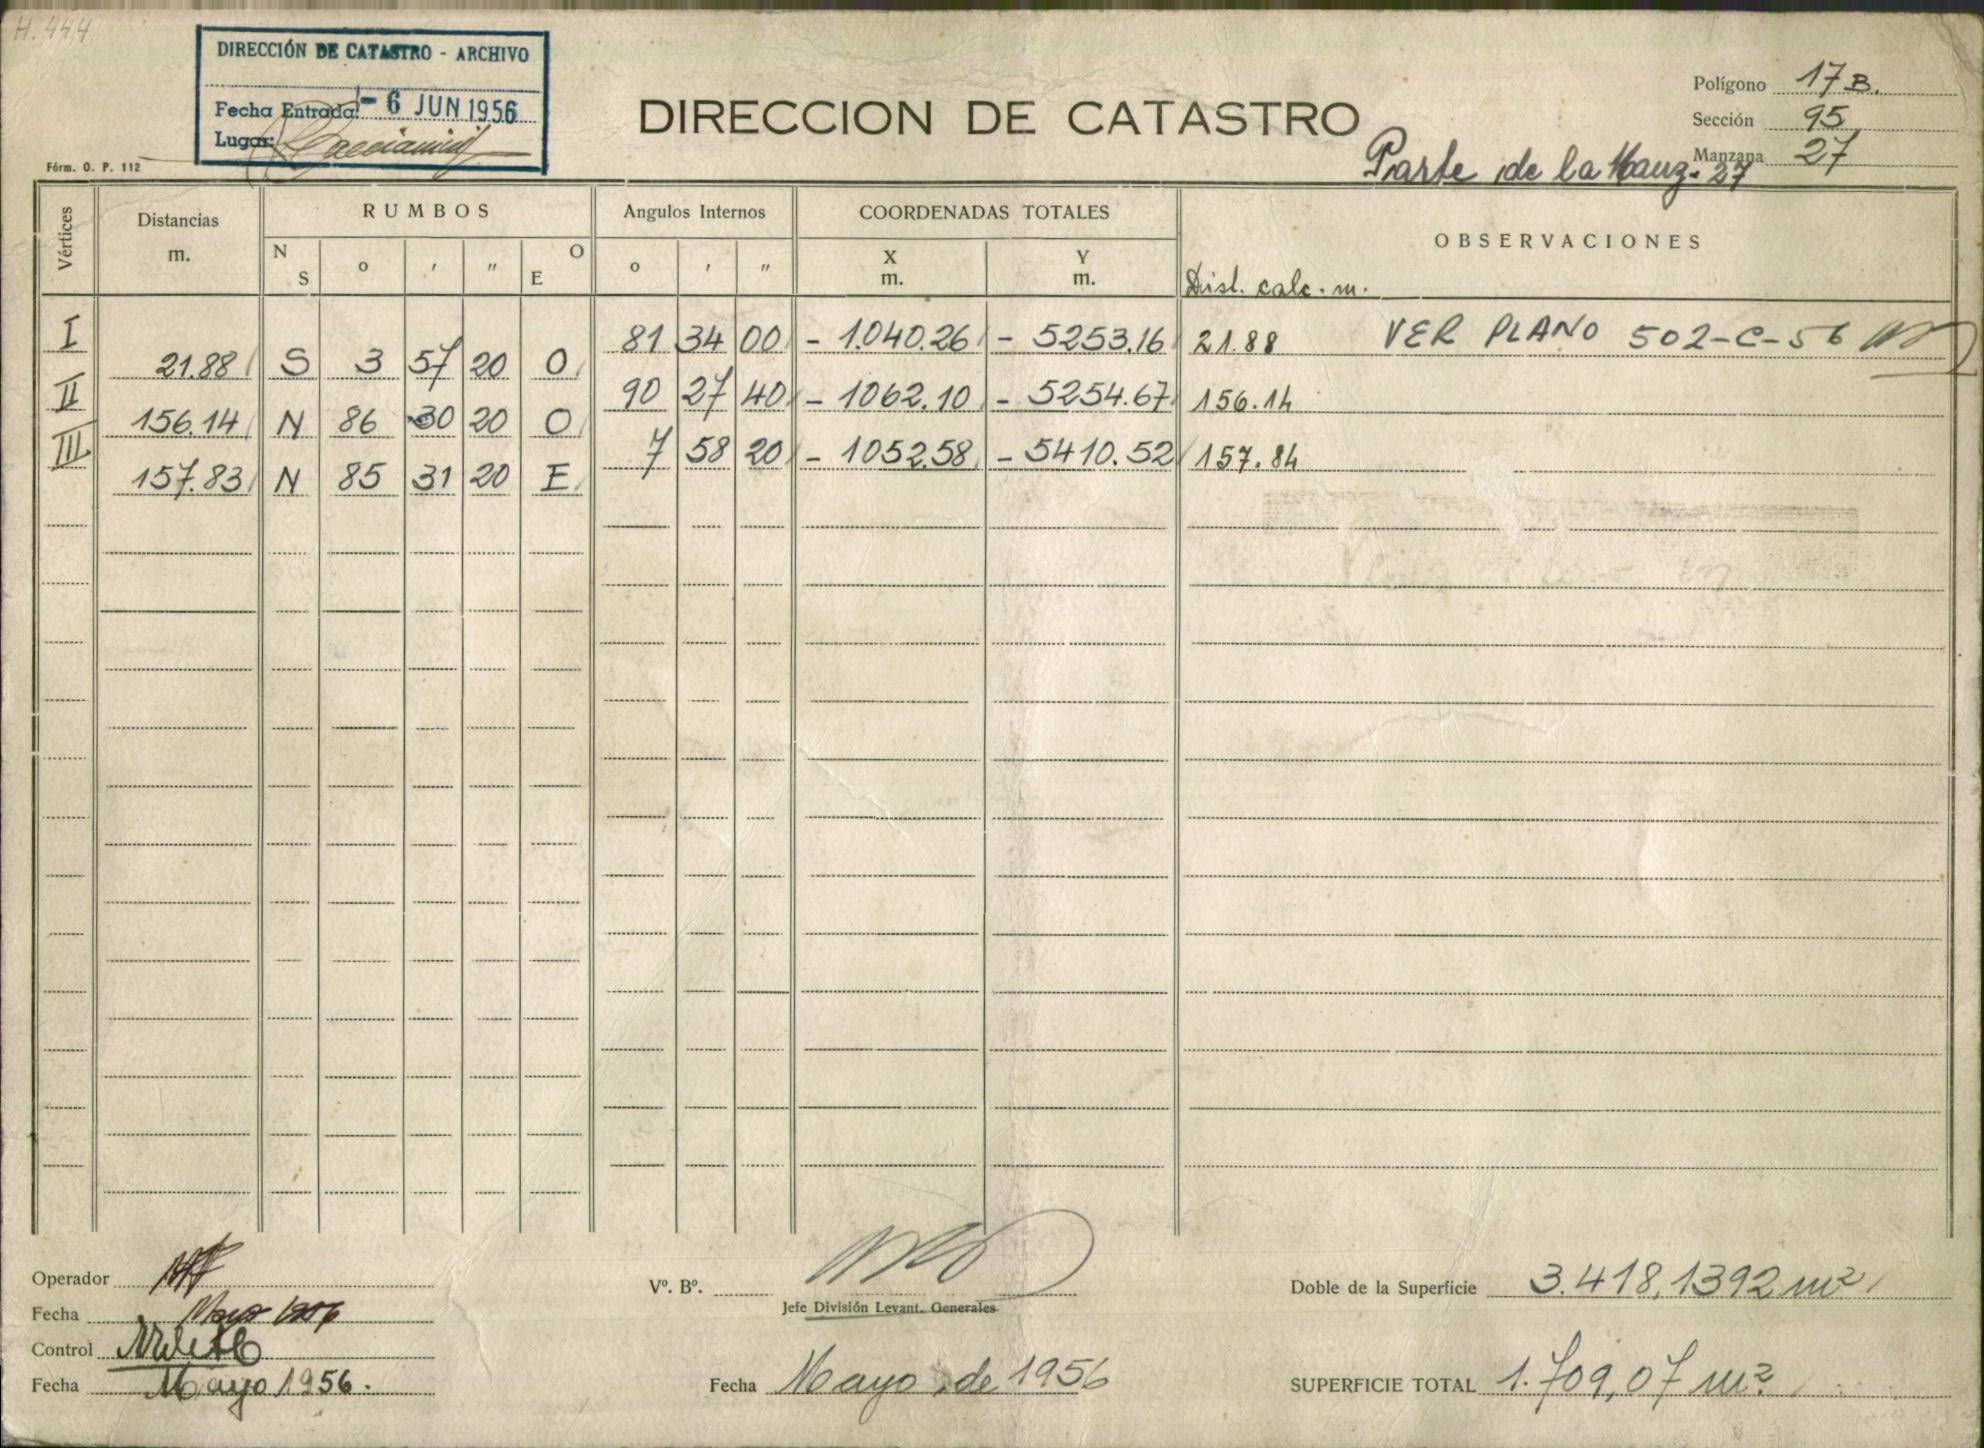 H. 444
DIRECCIÓN DE CATASTRO - ARCHIVO
Fecha Entrada: - 6 JUN 1956
Lugar:
Fórm. O. P. 112
DIRECCION DE CATASTRO
Polígono 17 B.
Sección 95
Manzana 27
Parte de la Manz. 27
Vértices
Distancias m.
RUMBOS
N S ° ' " E O
Angulos Internos
° ' "
COORDENADAS TOTALES
X m. Y m.
OBSERVACIONES
Dist. calc. m.
I 81 34 00 - 1.040.26 - 5253.16 21.88 VER PLANO 502-C-56
21.88 S 3 57 20 O
II 90 27 40 - 1062.10 - 5254.67 156.14
156.14 N 86 30 20 O
III 7 58 20 - 1052.58 - 5410.52 157.84
157.83 N 85 31 20 E
Operador
Fecha Mayo 1956
Control
Fecha Mayo 1956.
Vº. Bº.
Jefe División Levant. Generales
Fecha Mayo de 1956
Doble de la Superficie 3.418,1392 m²
SUPERFICIE TOTAL 1.709,07 m²